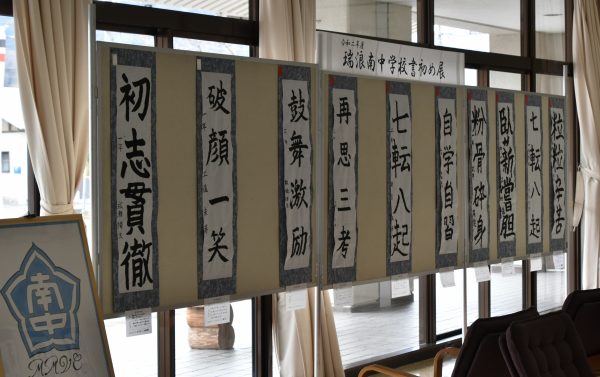 令和二年度
瑞浪南中学校書初め展
初志貫徹
破顔一笑
鼓舞激励
再思三考
七転八起
自学自習
粉骨砕身
臥薪嘗胆
七転八起
粒粒辛苦
南中